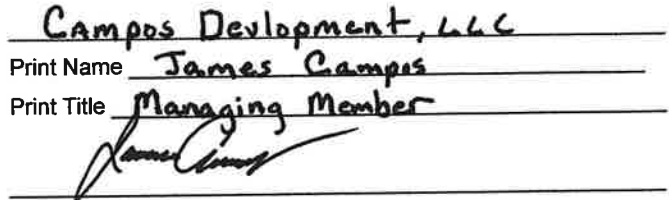 Campos Devlopment, LLC
Print Name James Campos
Print Title Managing Member